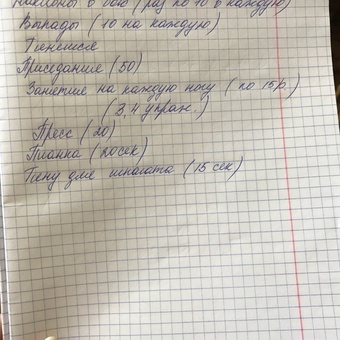 Наклоны в бок (раз по 10 в каждую)
Выпады (10 на каждую)
Приседания (50)
Занятие на каждую ногу (по 15р.)
(3, 4 упраж.)
Пресс (20)
Планка (20сек)
Тяну для шпагата (15 сек)